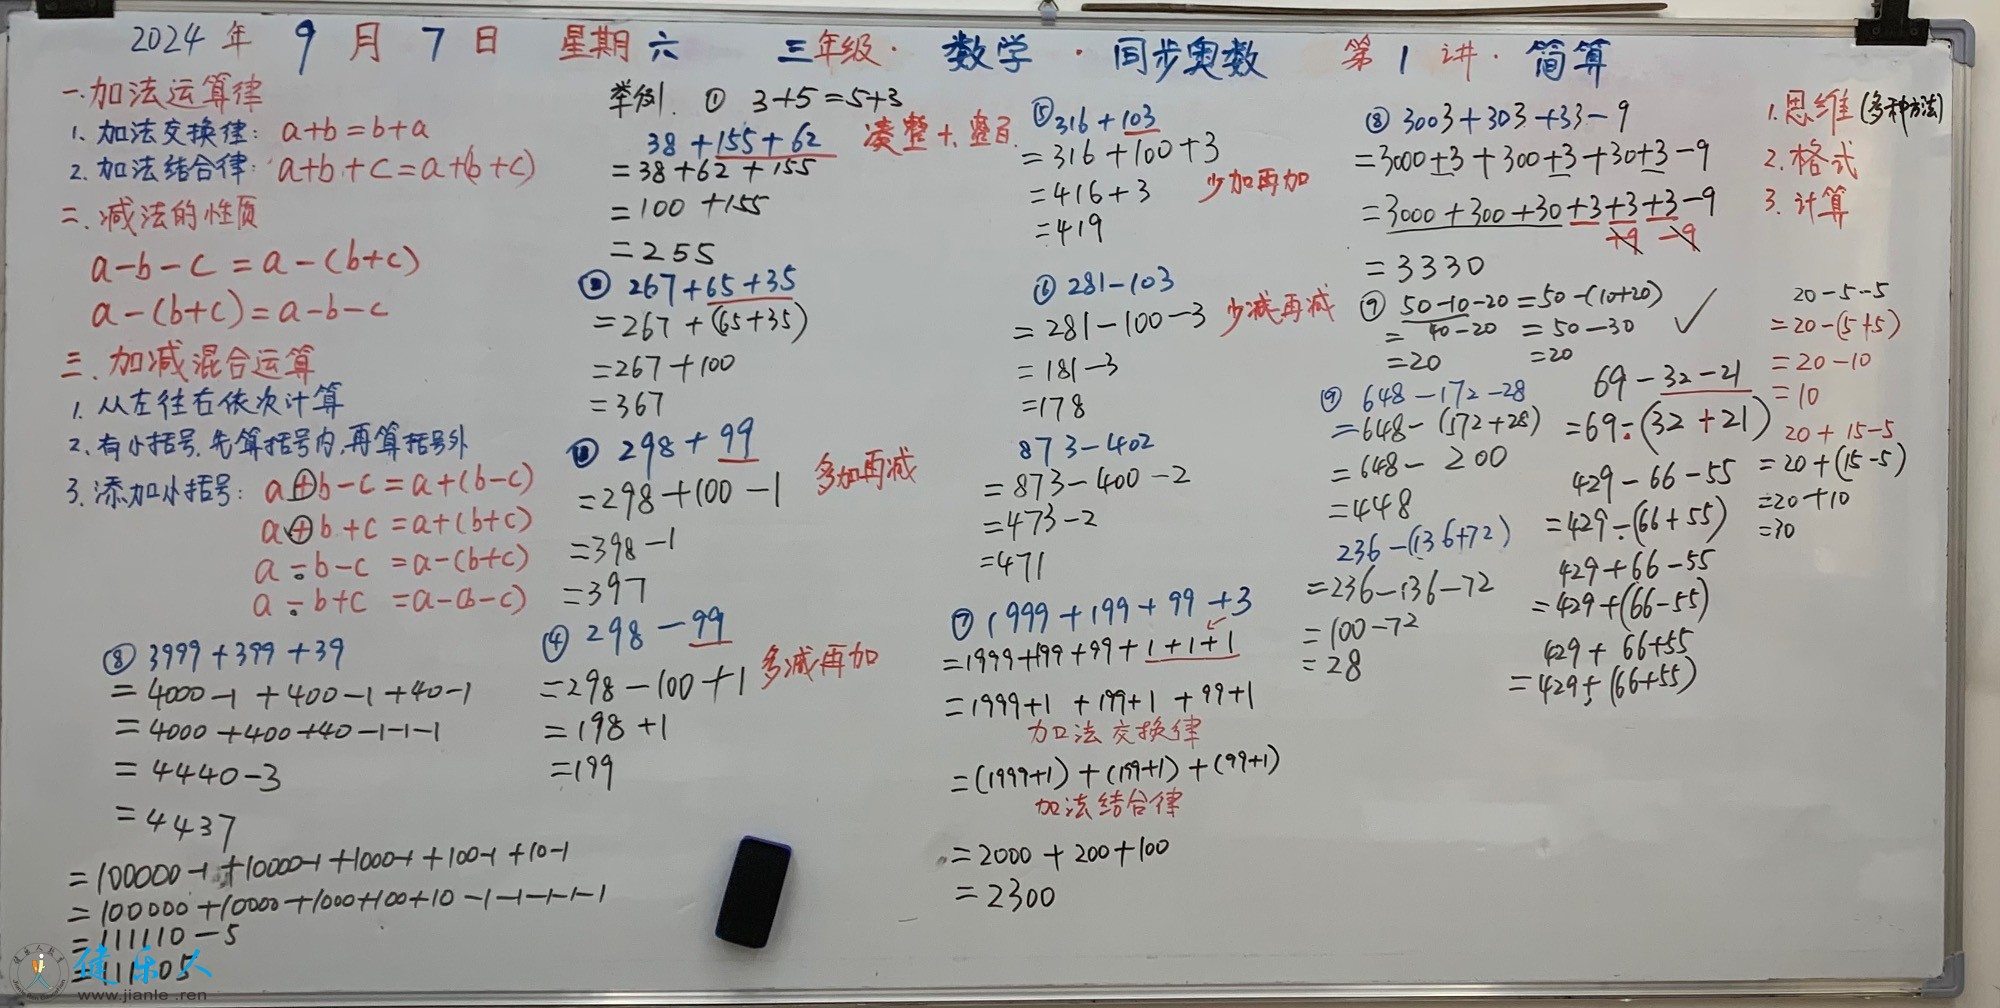 2024年 9月7日 星期六 三年级·数学·同步奥数 第1讲·简算
一.加法运算律
1.加法交换律: a+b=b+a
2.加法结合律: a+b+c=a+(b+c)
二.减法的性质
a-b-c=a-(b+c)
a-(b+c)=a-b-c
三.加减混合运算
1.从左往右依次计算
2.有小括号.先算括号内,再算括号外
3.添加小括号: a+b-c=a+(b-c)
a+b+c=a+(b+c)
a-b-c=a-(b+c)
a-b+c=a-(b-c)
⑧ 3999+399+39
=4000-1+400-1+40-1
=4000+400+40-1-1-1
=4440-3
=4437
=100000-1+10000-1+1000-1+100-1+10-1
=100000+10000+1000+100+10-1-1-1-1-1
=111110-5
=111105
举例. ① 3+5=5+3
38+155+62 凑整十.整百.
=38+62+155
=100+155
=255
② 267+65+35
=267+(65+35)
=267+100
=367
③ 298+99
=298+100-1 多加再减
=398-1
=397
④ 298-99
=298-100+1 多减再加
=198+1
=199
⑤ 316+103
=316+100+3
=416+3 少加再加
=419
⑥ 281-103
=281-100-3 少减再减
=181-3
=178
873-402
=873-400-2
=473-2
=471
⑦ 1999+199+99+3
=1999+199+99+1+1+1
=1999+1+199+1+99+1
加法交换律
=(1999+1)+(199+1)+(99+1)
加法结合律
=2000+200+100
=2300
⑧ 3003+303+33-9
=3000+3+300+3+30+3-9
=3000+300+30+3+3+3-9
+9 -9
=3330
⑨ 50-10-20=50-(10+20)
= 40-20 =50-30
=20 =20
⑨ 648-172-28
=648-(172+28)
=648-200
=448
236-(136+72)
=236-136-72
=100-72
=28
69-32-21
=69-(32+21)
429-66-55
=429-(66+55)
429+66-55
=429+(66-55)
429+66+55
=429+(66+55)
1.思维(多种方法)
2.格式
3.计算
20-5-5
=20-(5+5)
=20-10
=10
20+15-5
=20+(15-5)
=20+10
=30
健乐人
www.jianle.ren